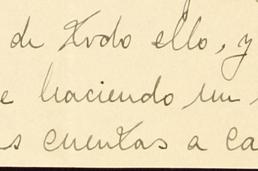 de todo ello, y
e haciendo un
s cuentas a ca